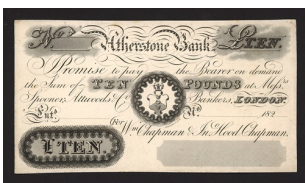 No Atherstone Bank £TEN.
I Promise to pay the Bearer on demand
the Sum of TEN POUNDS at Messrs.
Spooner, Attwoods & Co. Bankers, LONDON.
Entd. No. 182
For Wm Chapman & Jn. Hood Chapman.
£TEN